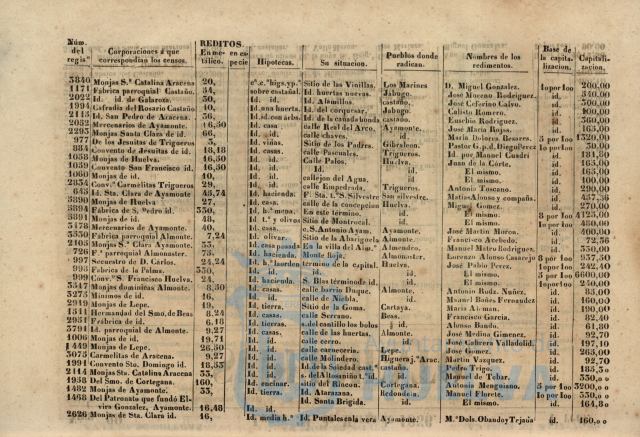 Núm. del regis° Corporaciones á que correspondian los censos. REDITOS. En metálico. en especie Hipotecas. Su situacion. Pueblos donde radican. Nombres de los redimentes. Base de la capitalizacion. Capitalizacion.
3840 Monjas S.ª Catalina Aracena 20, Sitio de las Vinillas. Los Marines D. Miguel Gonzalez. 10 por 100 200,00
1171 Fábrica parroquial Castaño, 34, sobre castañal. Id. huertas nuevas. Jabugo. José Moreno Rodriguez. id. 340,00
2022 Id. id. de Galaroza. 50, id. id. Id. Alamillos castaño, José Ceferino Calvo. id. 500,00
1994 Cofradía del Rosario Castaño 40, Id. una huerta. Id. del corquesar. Jabugo, Calisto Romero. id.
2113 Id. San Pedro de Aracena. 56, Id. de la cañada honda castaño, Eusebio Rodriguez. id. 560,00
2052 Mercenarios de Ayamonte. 16,50 Id. casa. calle Real del Arco. Ayamonte. José Maria Rojas. id. 165,00
2295 Monjas Santa Clara de 66, id. id. calle chaves. id. Maria Dolores Besares. 5 por 100 1320,00
977 De los Jesuitas de Trigueros 3, Id. viñas. Sitio de los Padrs. Gibraleon. 10 por 100 30,00
884 Convento de Jesuitas de id. 18,18 Id. casas. calle Pascuales. Trigueros. Id. por Manuel Cuadri id. 181,80
1058 Monjas de Huelva. 16,50 Id. id. Calle Palos. Huelva. Juan de la Corte. id. 165,00
1059 Convento San Francisco id. 16,50 Id. id. id. id. El mismo. id. 165,00
1060 Monjas de id. 40, Id. id. callejon del Agua. id. El mismo. id. 400,00
2854 Conv.º Carmelitas Trigueros 29, Id. id. calle Empedrada. Trigueros. Antonio Toscano. id. 290,00
645 Id. Sta. Clara de Ayamonte 43,74 Id. hacienda. S. Silvestre Matías Alonso y compañía. id.
3890 Monjas de Huelva 27, Id. casa. calle de la concepcion Huelva. Miguel Gomez. id. 270,00
3894 Fábrica de S. Pedro id. 330, Id. En este término. id. El mismo. 8 por 100 4125,00
3891 Monjas de id. 48, Id. y olivos Sitio de Montrocal. id. El mismo. 10 por 100 480,00
3478 Mercenarios de Ayamonte. 40, Id. casa. c.S. Antonio Ayam. Ayamonte. José Martin Moron. id. 400,00
3350 Fábrica parroquial Almonte. 7,24 Id. olivar. Sitio de la Abarigüela Almonte. Francisco Acebedo. id.
2105 Monjas S.ª Clara Ayamonte. 33, Id. casa posada En la villa del Alq.º Almendro. Manuel Mitro Rodriguez. id.
726 F.ª parroquial Almonaster. 73, Id. hacienda. Monte Roja. Almonaster. Lorenzo Alonso Casarejo 8 por 100
997 Secuestro de D. Carlos. 24,24 término de la capital. Huelva. José Pablo Perez. 10 por 100 242,40
993 Fabrica de la Palma. 330, Id. id. id. id. 5 por 100 6600,00
999 Conv.º S. Francisco Huelva. 24, Id. hacienda. S. Blas término de id. id. El mismo. 10 por 100 240,00
3517 Monjas dominicas Almonte. 8,50 Id. casas. calle barrio Duque. Almonte. Antonio Roda. Nuñez. id. 85,00
3275 Mínimos de id. 16, Id. id. calle de Niebla. id. Manuel Bañes Fernandez id. 160,00
2919 Monjas de Lepe. 19, Id. tierra. Sitio de la Goma. Cartaya. Maria Aleman. id. 190,00
1311 Hermandad del Smo. de Beas 8,24 Id. casas. calle Serrano. Beas. Francisco Garcia. id. 82,40
2951 Fábrica de id. 6,18 Id. tierras. del cantillo los bolos id. Alonso Bando. id. 61,80
3791 Id. parroquial de Almonte. 9,27 Id. casas. calle de las huertas. Almonte. José Medina Gimenez. id. 92,70
1006 Monjas de id. 19,71 Id. id. calle cerro. id. José Cabrera Valladolid. id. 197,10
1449 Monjas de Lepe. 26,50 Id. id. calle carnecería. Lepe. José Gomez. id. 265,00
3075 Carmelitas de Aracena. 9,27 Id. id. calle Molinedero. Higuera j.º Arac. Martin Vazquez. id. 92,70
1991 Convento Sto. Domingo id. Id. id. Id. de la Soledad cast.º castaño. Pedro Trigo. id.
2114 Monjas Sta. Catalina Aracena 33, Id. id. id. Manuel de Tobar. id. 330,00
1958 Del Smo. de Cortegana. 160, Id. encinar. sitio del Rincon. Cortegana. Antonio Menguiano. 5 por 100 3200,00
1482 Monjas de Ayamonte. 33, Id. tierra. Id. Atarazana. Redondela. Manuel Florete. 10 por 100 330,00
1468 Del Patronato que fundó Elvira Gonzalez, Ayamonte. 16,48 Id. id. Id. Santa Brigida. id. El mismo. id. 164,80
2626 Monjas de Sta. Clara id. 46, Id. media h.ª Id. Puntales en la vera Ayamonte. M.ª Dols. Obando y Tejada id. 460,00